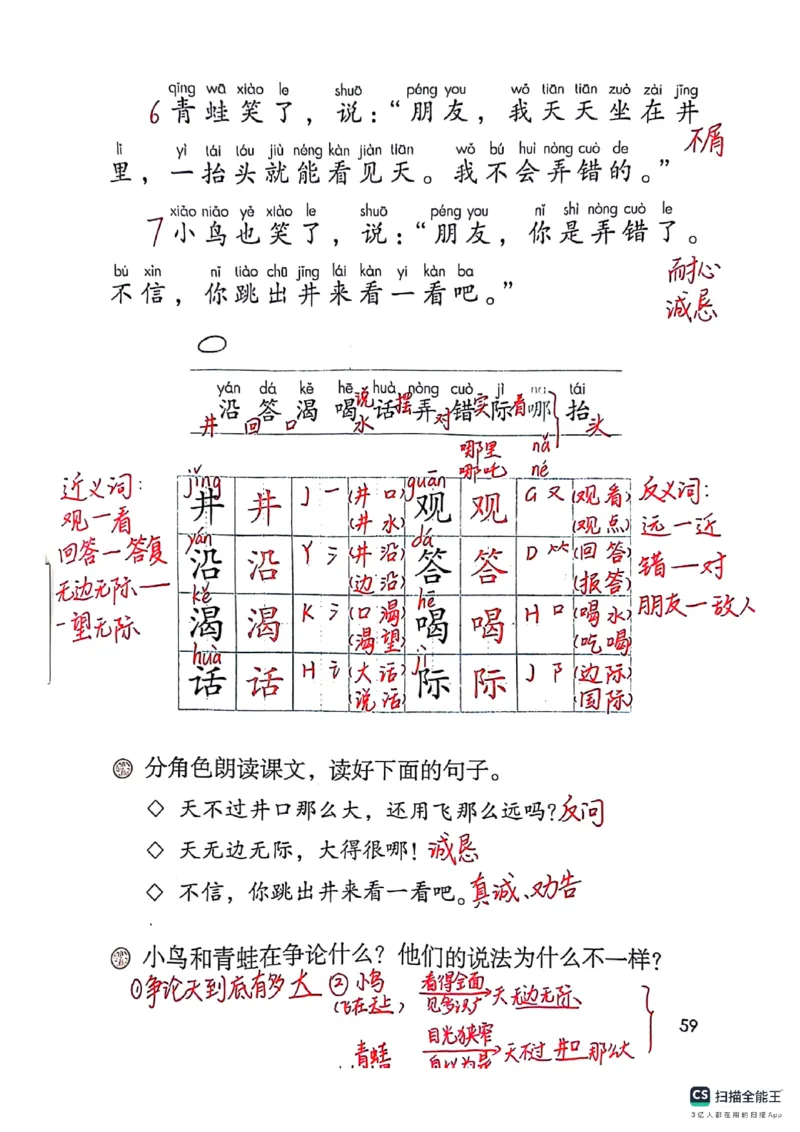 qīng wā xiào le shuō péng you wǒ tiān tiān zuò zài jǐng
6 青蛙笑了，说：“朋友，我天天坐在井
不屑
lǐ yì tái tóu jiù néng kàn jiàn tiān wǒ bú huì nòng cuò de
里，一抬头就能看见天。我不会弄错的。”
xiǎo niǎo yě xiào le shuō péng you nǐ shì nòng cuò le
7 小鸟也笑了，说：“朋友，你是弄错了。
耐心
bú xìn nǐ tiào chū jǐng lái kàn yi kàn ba
不信，你跳出井来看一看吧。”
诚恳
yán dá kě hē huà nòng cuò jì tái
沿 答 渴 喝 话 弄 错 际 哪 抬
井 回 口 水 说 摆 对 实 看 头
哪里 nǎ
哪吒 né
近义词：
观—看
回答—答复
无边无际—
一望无际
jǐng guān
井 井 J 一 (井口) 观 观 G 又 (观看)
(井水) (观点)
yán dá
沿 沿 Y 氵 (井沿) 答 答 D ⺮ (回答)
(边沿) (报答)
kě hē
渴 渴 K 氵 (口渴) 喝 喝 H 口 (喝水)
(渴望) (吃喝)
huà jì
话 话 H 讠 (大话) 际 际 J 阝 (边际)
(说话) (国际)
反义词：
远—近
错—对
朋友—敌人
分角色朗读课文，读好下面的句子。
◇ 天不过井口那么大，还用飞那么远吗？反问
◇ 天无边无际，大得很哪！诚恳
◇ 不信，你跳出井来看一看吧。真诚、劝告
小鸟和青蛙在争论什么？他们的说法为什么不一样？
①争论天到底有多大 ②小鸟 看得全面 天无边无际、
(飞在天上) 见多识广
目光狭窄
青蛙 天不过井口那么大
自以为是
59
CS 扫描全能王
3亿人都在用的扫描App